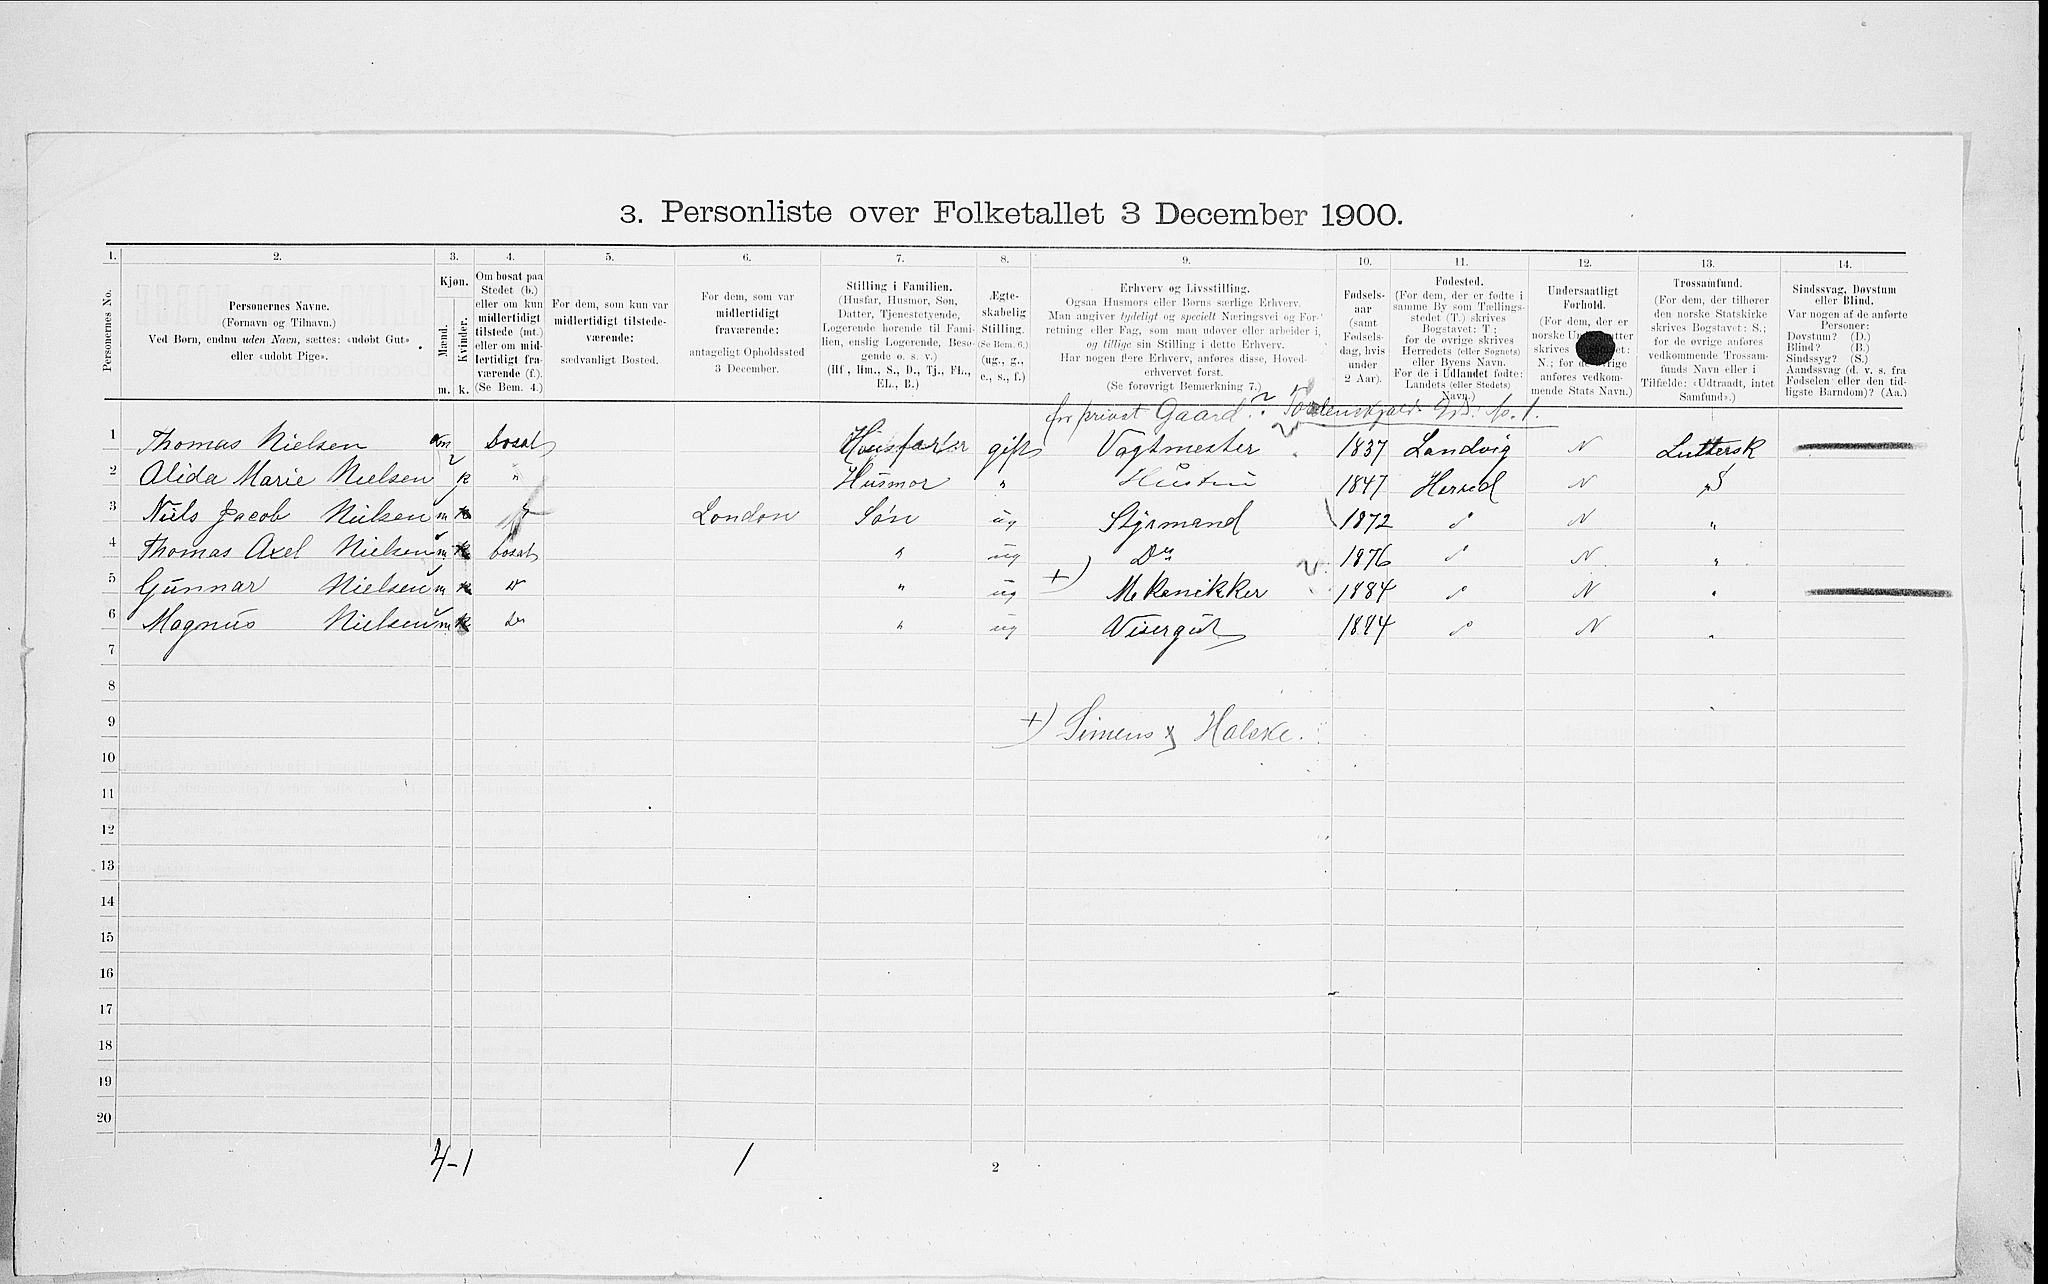 3. Personliste over Folketallet 3 December 1900.
1. 2. 3. 4. 5. 6. 7. 8. 9. 10. 11. 12. 13. 14.
Personernes No.
Personernes Navne.
(Fornavn og Tilnavn.)
Ved Børn, endnu uden Navn, sættes: «udøbt Gut»
eller «udøbt Pige».
Kjøn.
Mænd. Kvinder.
m. k.
Om bosat paa
Stedet (b.)
eller om kun
midlertidigt
tilstede (mt.)
eller om mid-
lertidigt fra-
værende (f.).
(Se Bem. 4.)
For dem, som kun var
midlertidigt tilstede-
værende:
sædvanligt Bosted.
For dem, som var
midlertidigt
fraværende:
antageligt Opholdssted
3 December.
Stilling i Familien.
(Husfar, Husmor, Søn,
Datter, Tjenestetyende,
Logerende hørende til Fami-
lien, enslig Logerende, Besø-
gende o. s. v.)
(Hf., Hm., S., D., Tj., FL.,
EL., B.)
Ægte-
skabelig
Stilling.
(Se Bem. 6.)
(ug., g.,
e., s., f.)
Erhverv og Livsstilling.
Ogsaa Husmors eller Børns særlige Erhverv.
Man angiver tydeligt og specielt Næringsvei og For-
retning eller Fag, som man udøver eller arbeider i,
og tillige sin Stilling i dette Erhverv.
Har nogen flere Erhverv, anføres disse, Hoved-
erhvervet først.
(Se forøvrigt Bemerkning 7.)
Fødsels-
aar
(samt
Fødsels-
dag, hvis
under
2 Aar).
Fødested.
(For dem, der er fødte i
samme By som Tællings-
stedet (T.) skrives
Bogstavet: T.;
for de øvrige skrives
Herredets (eller Sognets)
eller Byens Navn.
For de i Udlandet fødte:
Landets (eller Stedets)
Navn.)
Undersaatligt
Forhold.
(For dem, der er
norske
skrives
N.; for de øvrige
anføres vedkom-
mende Stats Navn.)
Trossamfund.
(For dem, der tilhører
den norske Statskirke
skrives Bogstavet: S.;
for de øvrige anføres
vedkommende Trossam-
funds Navn eller i
Tilfælde: «Udtraadt, intet
Samfund».)
Sindssvag, Døvstum
eller Blind.
Var nogen af de anførte
Personer:
Døvstum? (D.)
Blind? (B.)
Sindssyg? (S.)
Aandssvag (d. v. s. fra
Fødselen eller den tid-
ligste Barndom)? (Aa.)
for privat Gaard. Tordenskjolds Gd. No. 1.
1 Thomas Nielsen m bosat Husfader gift Vagtmester 1837 Landvig N Luttersk
2 Alida Marie Nielsen k " Husmor " Hustru 1847 Herred N "
3 Niels Jacob Nielsen m f London Søn ug Styrmand 1872 " N "
4 Thomas Axel Nielsen m bosat " ug Do 1876 " N "
5 Gunnar Nielsen m " " ug +) Mekanikker 1884 " N "
6 Magnus Nielsen m Do " ug Visergut 1884 " N "
7
8
9 +) Simens & Halske.
10
11
12
13
14
15
16
17
18
19
20
4-1 1
2